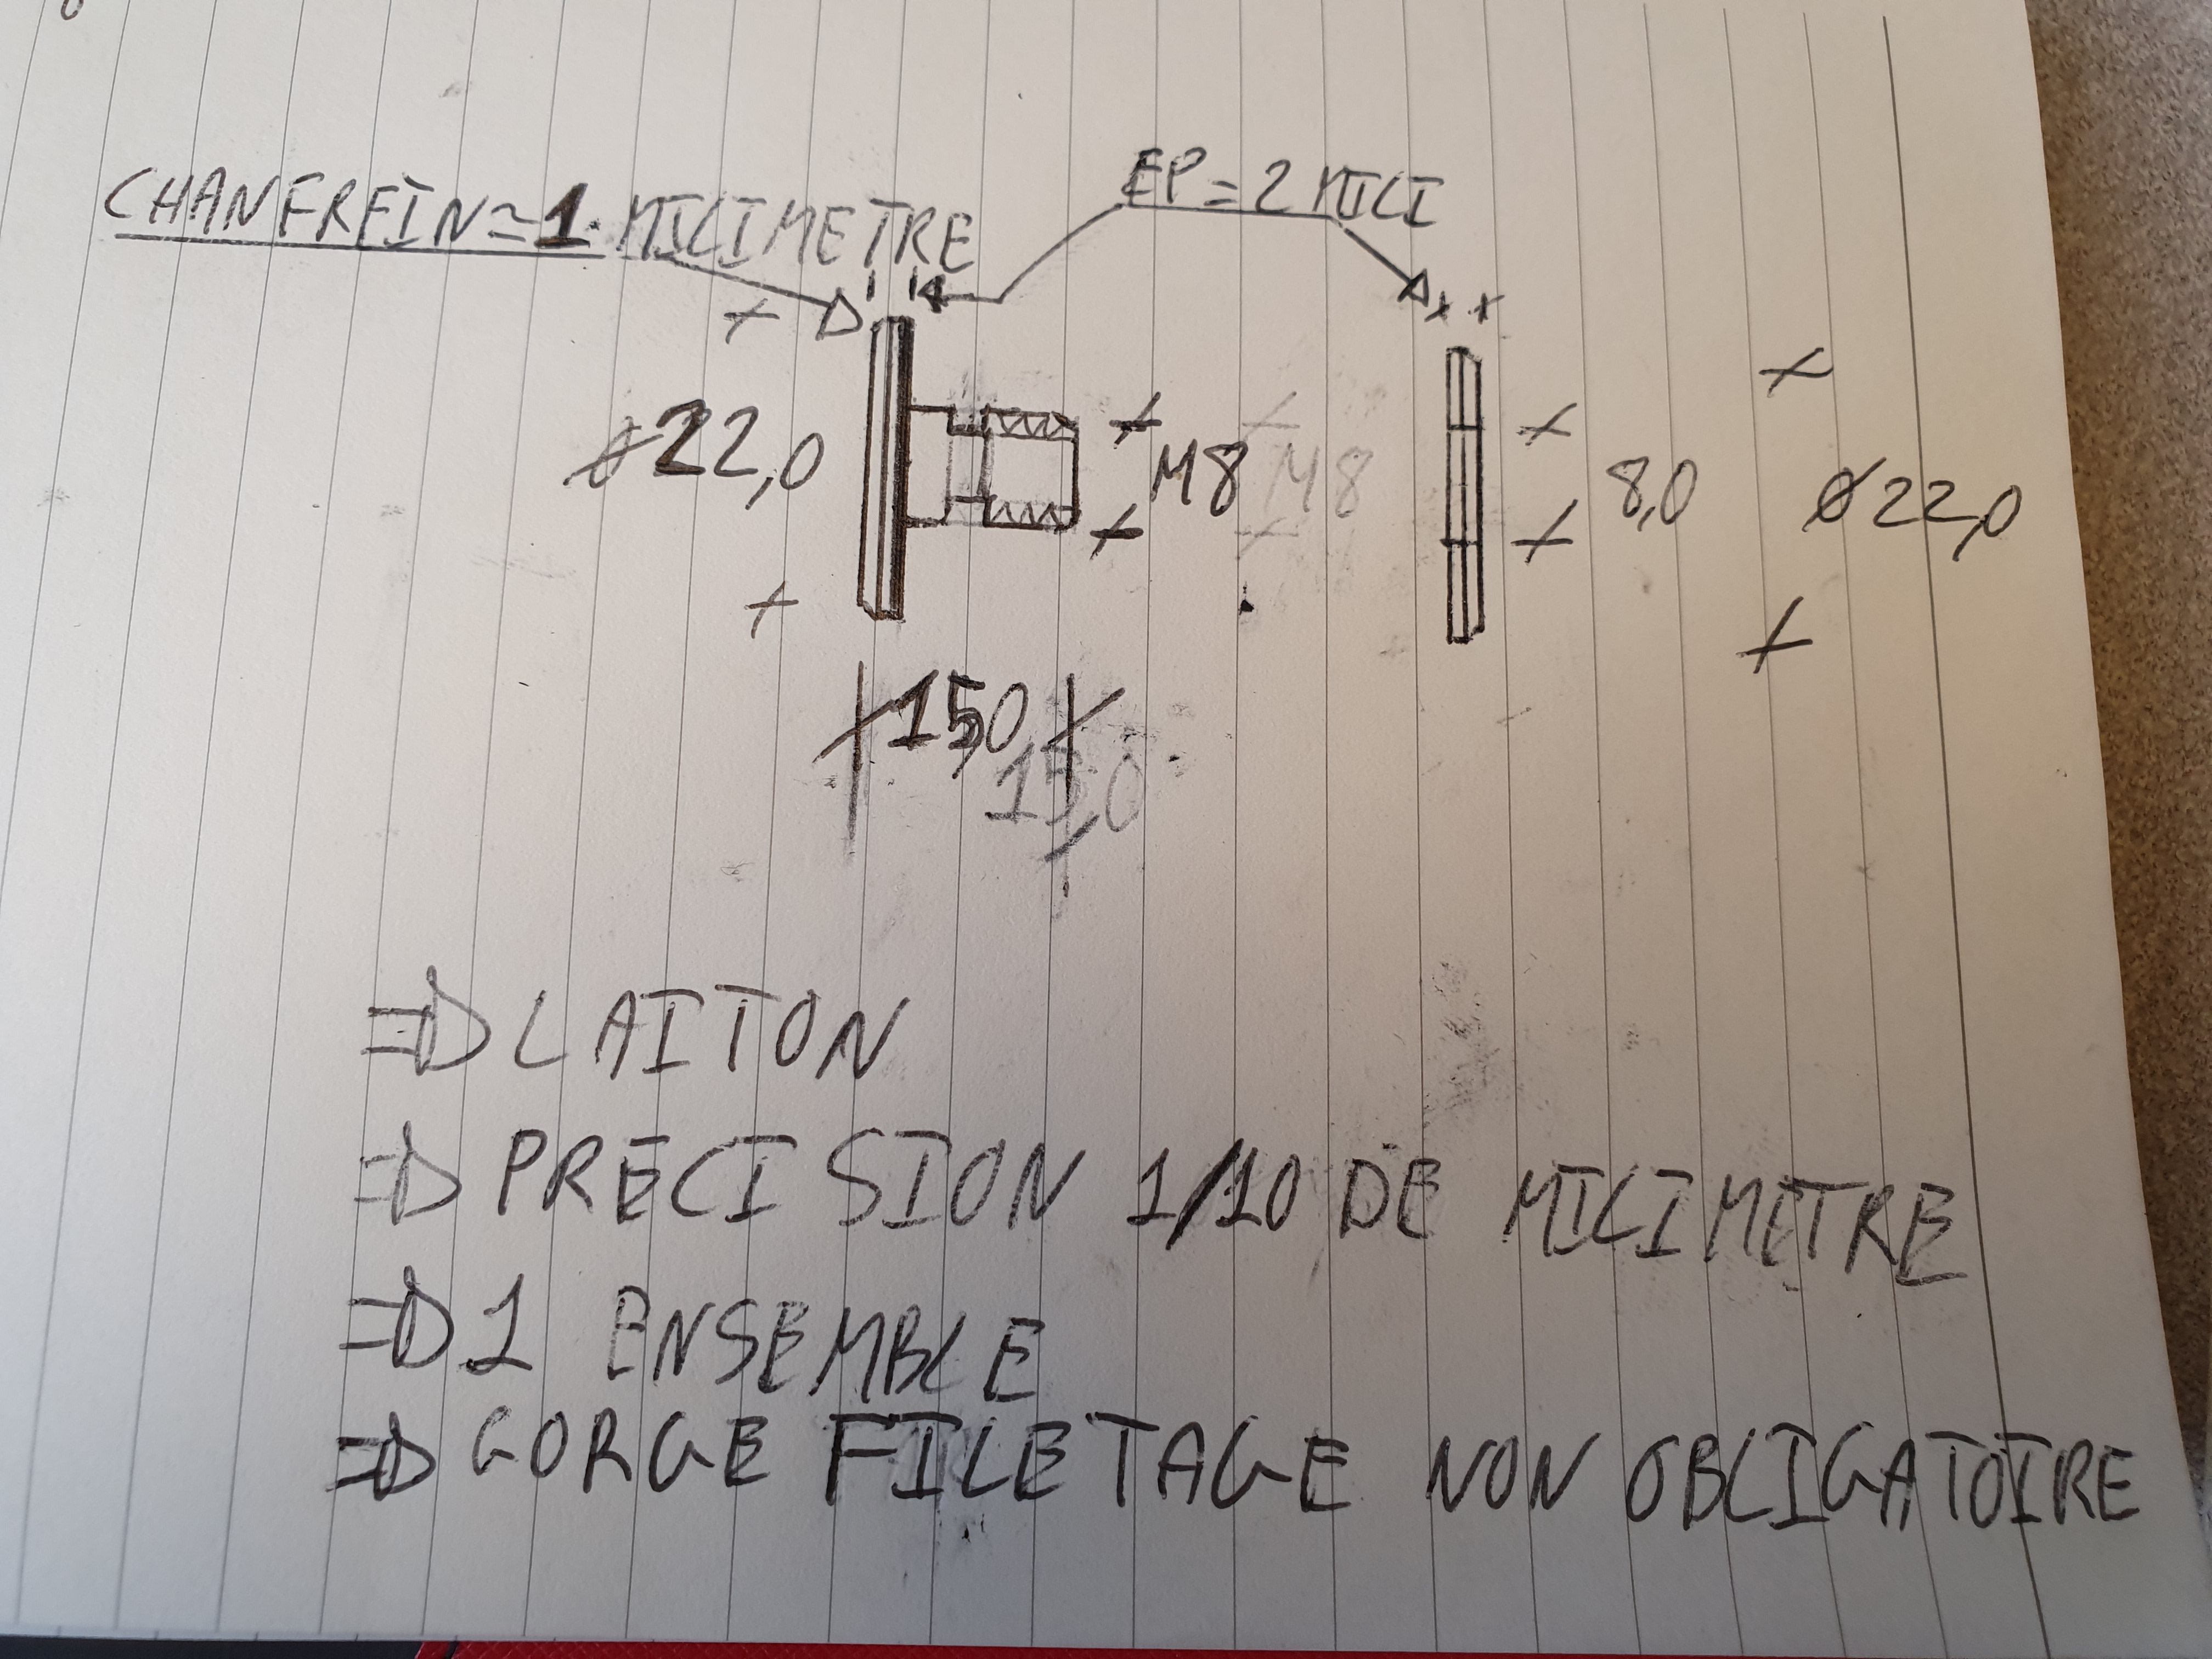 EP=2 MILI
CHANFREIN≃1 MILIMETRE
ø22,0
M8
M8
8,0
ø22,0
15,0
15,0
=> LAITON
=> PRECISION 1/10 DE MILIMETRE
=> 1 ENSEMBLE
=> GORGE FILETAGE NON OBLIGATOIRE